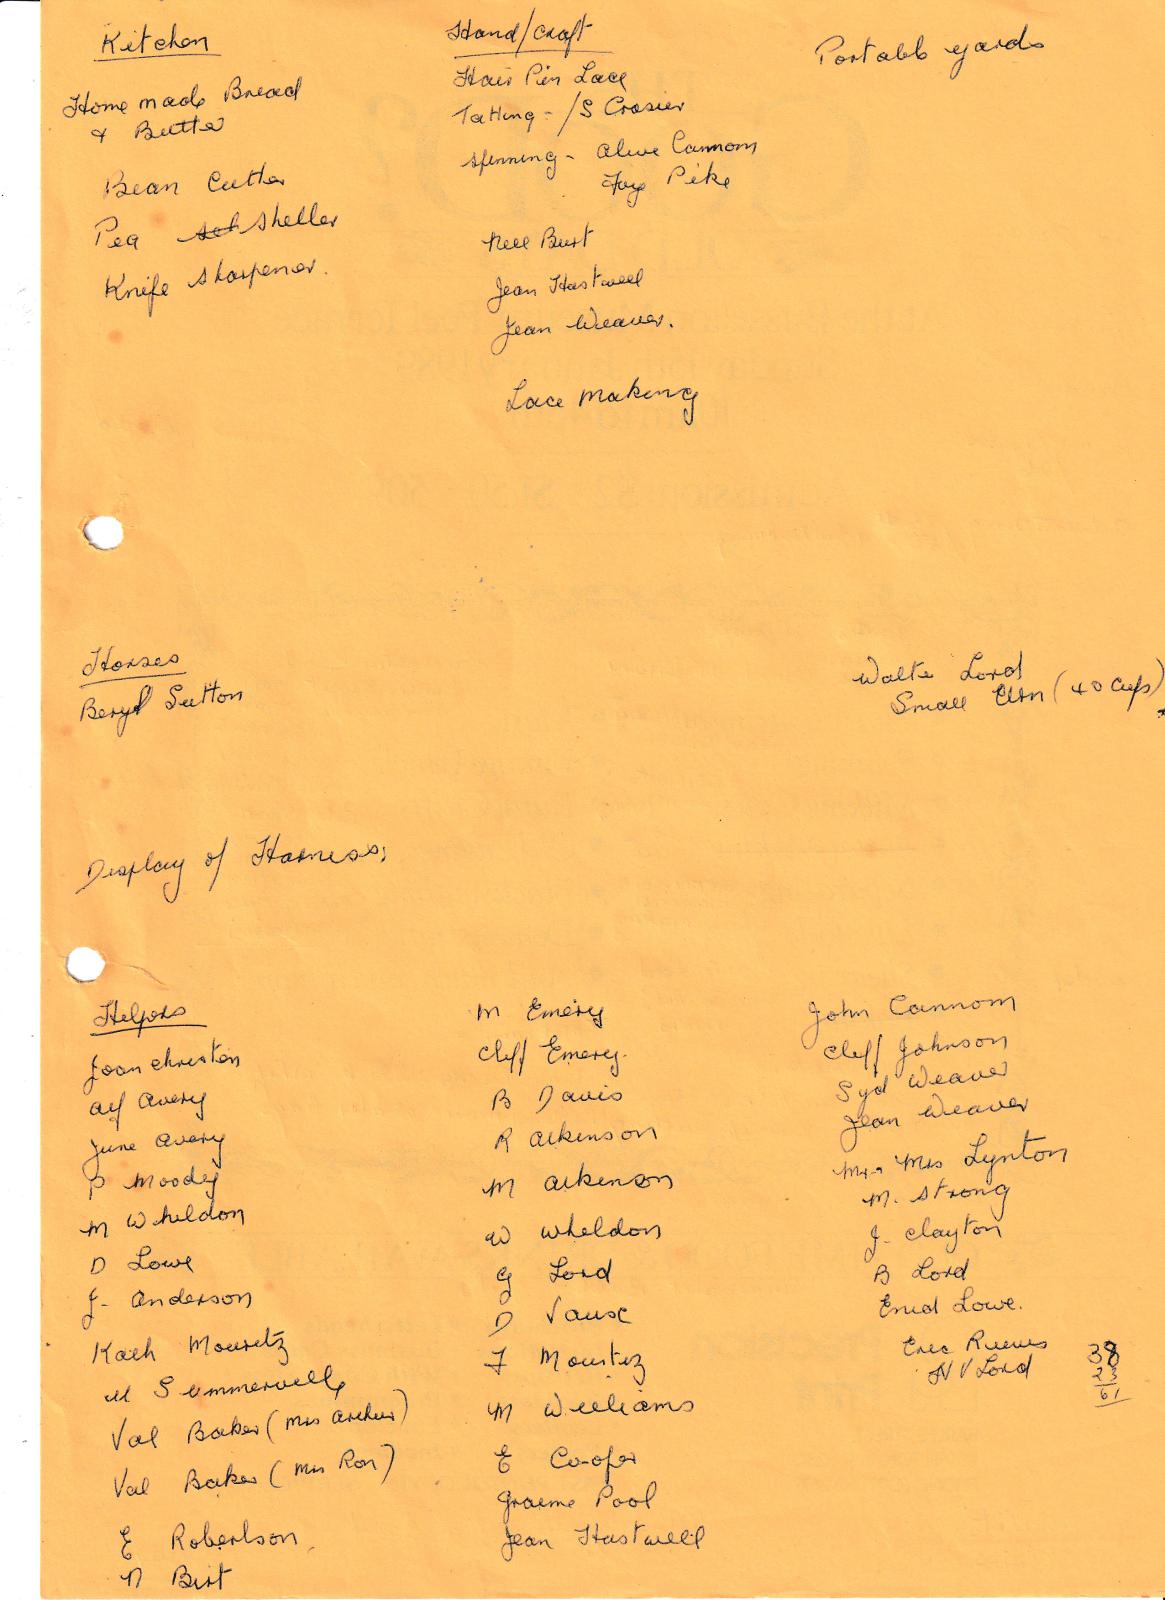 Kitchen
Home made Bread
& Butter
Bean Cutter
Pea sheller
Knife sharpener.
Hand/craft
Hair Pin Lace
Tatting - /S Crosier
spinning - Alive Cannom
Faye Pike
Nell Burt
Jean Hastwell
Jean Weaver.
Lace making
Portable yards
Horses
Beryl Sutton
Walte Lord
Small Urn (40 cups)
Display of Harness,
Helpers
Joan Christen
Alf Avery
June Avery
P Moody
M Wheldon
D Lowe
J- Anderson
Kath Mouritz
M Summervelle
Val Baker (Mrs Arthur)
Val Baker (Mrs Ron)
E Robertson
N Birt
M Emery
Cliff Emery.
B Davis
R Atkinson
M Atkinson
W Wheldon
G Lord
D Vause
F Mouritz
M Williams
E Cooper
Graeme Pool
Jean Hastwell
John Cannom
Cliff Johnson
Syd Weaver
Jean Weaver
Mr + Mrs Lynton
M. Strong
J- Clayton
B Lord
Enid Lowe.
Eric
N V Lord
38
23
61